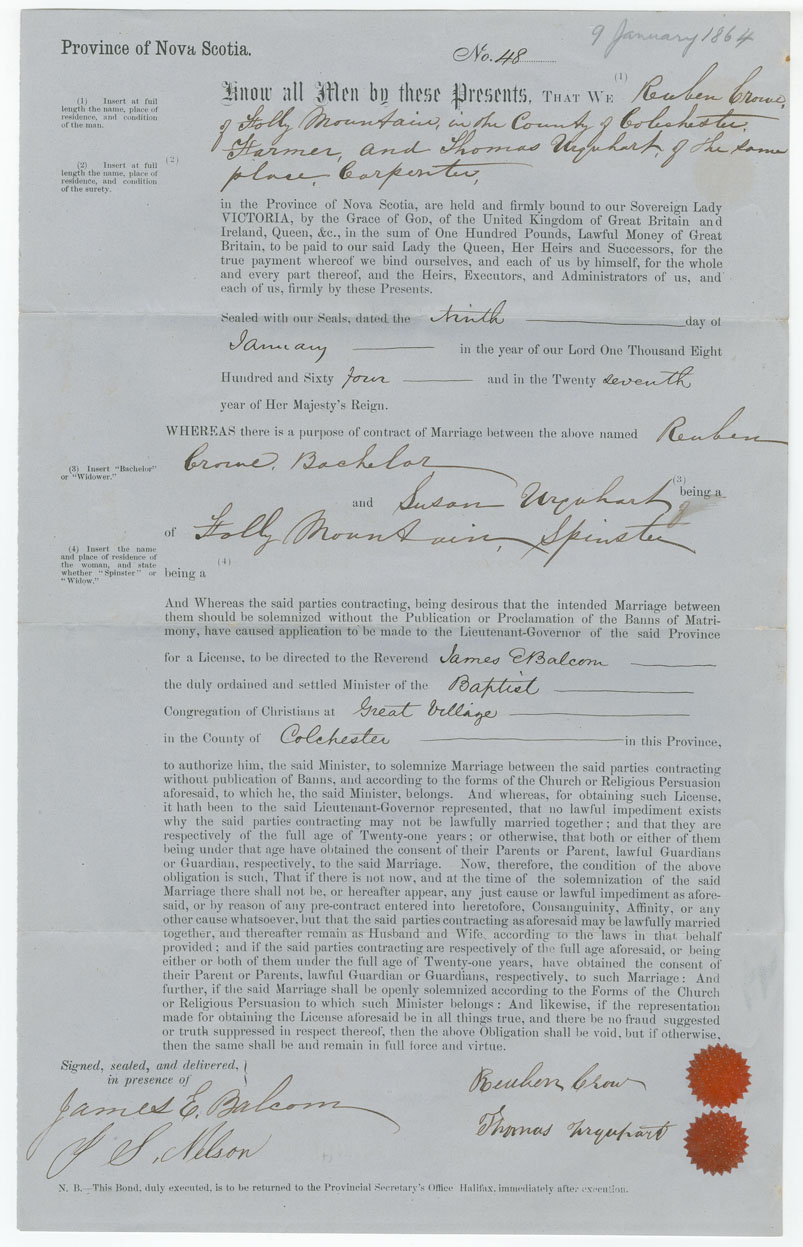 9 January 1864
Province of Nova Scotia.
No. 48
(1)
Know all Men by these Presents, THAT WE Reuben Crowe,
(1) Insert at full
length the name, place of
residence, and condition
of the man.
of Folly Mountain, in the County of Colchester,
(2)
Farmer, and Thomas Urquhart, of the same
(2) Insert at full
length the name, place of
residence, and condition
of the surety.
place, Carpenter,
in the Province of Nova Scotia, are held and firmly bound to our Sovereign Lady
VICTORIA, by the Grace of God, of the United Kingdom of Great Britain and
Ireland, Queen, &c., in the sum of One Hundred Pounds, Lawful Money of Great
Britain, to be paid to our said Lady the Queen, Her Heirs and Successors, for the
true payment whereof we bind ourselves, and each of us by himself, for the whole
and every part thereof, and the Heirs, Executors, and Administrators of us, and
each of us, firmly by these Presents.
Sealed with our Seals, dated the Ninth day of
January in the year of our Lord One Thousand Eight
Hundred and Sixty four and in the Twenty seventh
year of Her Majesty's Reign.
WHEREAS there is a purpose of contract of Marriage between the above named Reuben
(3) Insert "Bachelor"
or "Widower."
Crowe, Bachelor
(3)
being a
and Susan Urquhart
of Folly Mountain, Spinster
(4) Insert the name
and place of residence of
the woman, and state
whether "Spinster" or
"Widow."
(4)
being a
And Whereas the said parties contracting, being desirous that the intended Marriage between
them should be solemnized without the Publication or Proclamation of the Banns of Matri-
mony, have caused application to be made to the Lieutenant-Governor of the said Province
for a License, to be directed to the Reverend James E Balcom
the duly ordained and settled Minister of the Baptist
Congregation of Christians at Great Village
in the County of Colchester in this Province,
to authorize him, the said Minister, to solemnize Marriage between the said parties contracting
without publication of Banns, and according to the forms of the Church or Religious Persuasion
aforesaid, to which he, the said Minister, belongs. And whereas, for obtaining such License,
it hath been to the said Lieutenant-Governor represented, that no lawful impediment exists
why the said parties contracting may not be lawfully married together; and that they are
respectively of the full age of Twenty-one years; or otherwise, that both or either of them
being under that age have obtained the consent of their Parents or Parent, lawful Guardians
or Guardian, respectively, to the said Marriage. Now, therefore, the condition of the above
obligation is such, That if there is not now, and at the time of the solemnization of the said
Marriage there shall not be, or hereafter appear, any just cause or lawful impediment as afore-
said, or by reason of any pre-contract entered into heretofore, Consanguinity, Affinity, or any
other cause whatsoever, but that the said parties contracting as aforesaid may be lawfully married
together, and thereafter remain as Husband and Wife, according to the laws in that behalf
provided; and if the said parties contracting are respectively of the full age aforesaid, or being
either or both of them under the full age of Twenty-one years, have obtained the consent of
their Parent or Parents, lawful Guardian or Guardians, respectively, to such Marriage: And
further, if the said Marriage shall be openly solemnized according to the Forms of the Church
or Religious Persuasion to which such Minister belongs: And likewise, if the representation
made for obtaining the License aforesaid be in all things true, and there be no fraud suggested
or truth suppressed in respect thereof, then the above Obligation shall be void, but if otherwise,
then the same shall be and remain in full force and virtue.
Signed, sealed, and delivered,
in presence of
James E. Balcom
J S. Nelson
Reuben Crow
Thomas Urquhart
N. B.—This Bond, duly executed, is to be returned to the Provincial Secretary's Office Halifax, immediately after execution.